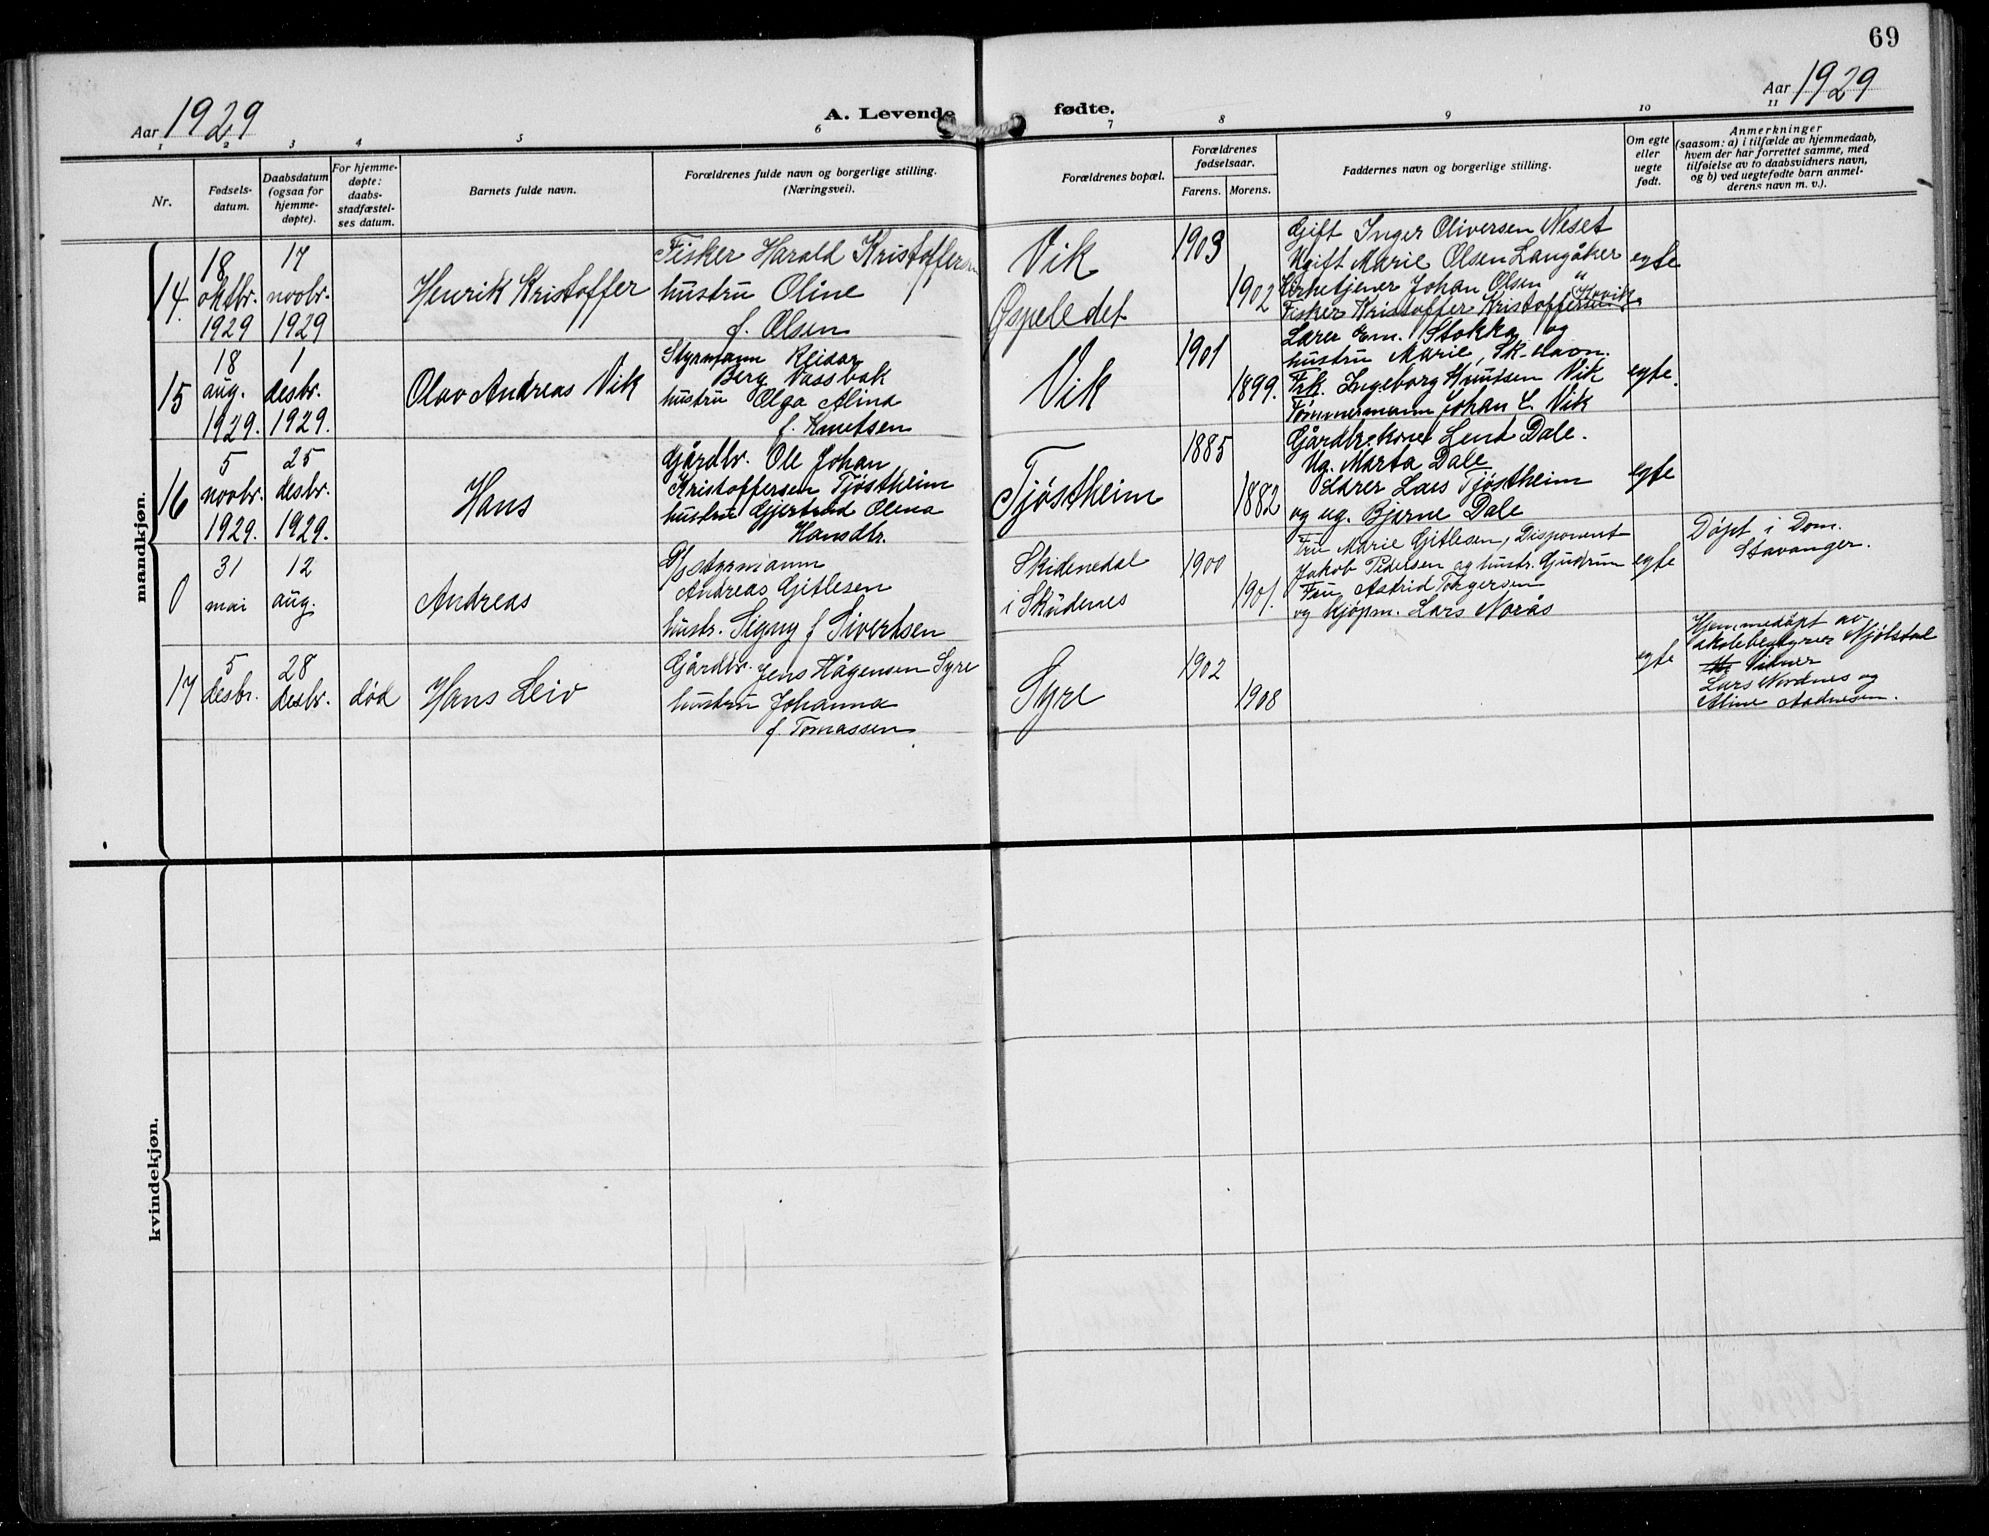 69
Aar 1929
A. Levende fødte.
Aar 1929
1 2 3 4 5 6 7 8 9 10 11
Nr.
Fødsels-
datum.
Daabsdatum
(ogsaa for
hjemme-
døpte).
For hjemme-
døpte:
daabs-
stadfæstel-
ses datum.
Barnets fulde navn.
Forældrenes fulde navn og borgerlige stilling.
(Næringsvei).
Forældrenes bopæl.
Forældrenes
fødselsaar.
Farens. Morens.
Faddernes navn og borgerlige stilling.
Om egte
eller
uegte
født.
Anmerkninger
(saasom: a) i tilfælde av hjemmedaab,
hvem der har forrettet samme, med
tilføielse av to daabsvidners navn,
og b) ved uegtefødte barn anmel-
derens navn m. v.).
mandkjøn.
14.
18
oktbr.
1929
17
novbr.
1929
Henrik Kristoffer
Fisker Harald Kristoffersen
hustru Oline
f. Olsen
Vik
Øspeledet
1903
1902
Gift Inger Oliversen Neset
Ugift Marie Olsen Langåker
Kirketjener Johan Olsen "
Fisker Kristoffer Kristoffersen
egte
15
18
aug.
1929.
1
desbr.
1929.
Olav Andreas Vik
Styrmann Reidar
Berg Vassbak
hustru Olga Alina
f. Knutsen
Vik
1901
1899.
Lærer Em. Stokka og
hustru Marie, Sk-havn.
Frk. Ingeborg Knutsen Vik
Tømmermann Johan L. Vik
egte.
16
5
novbr.
1929.
25
desbr.
1929.
Hans
Gårdbr. Ole Johan
Kristoffersen Tjøstheim
hustru Gjertrud Olena
Hansdtr.
Tjøstheim
1885
1882
Gårdbr.kone Lena Dale.
Ug. Marta Dale
Lærer Lars Tjøstheim
og ug. Bjarne Dale
egte
0
31
mai
12
aug.
Andreas
Styrmann
Andreas Gitlesen
hustr. Signy f Sivertsen
Skidenedal
i Skudenes
1900
1901.
Fru Marie Gitlesen, Disponent
Jakob Pedersen og hustr. Gudrun
Fru Astrid Torgersen
og kjøpm. Lars Norås
egte
Døpt i Dom.
Stavanger.
17
5
desbr.
28
desbr.
død
Hans Leiv
Gårdbr. Jens Hågensen Syre
hustru Johanna
f. Tomassen
Syre
1902
1908
egte
Hjemmedøpt av
skolebestyrer Mjølsdal
Vidner
Lars Nordnes og
Aline Aadnesen.
kvindekjøn.